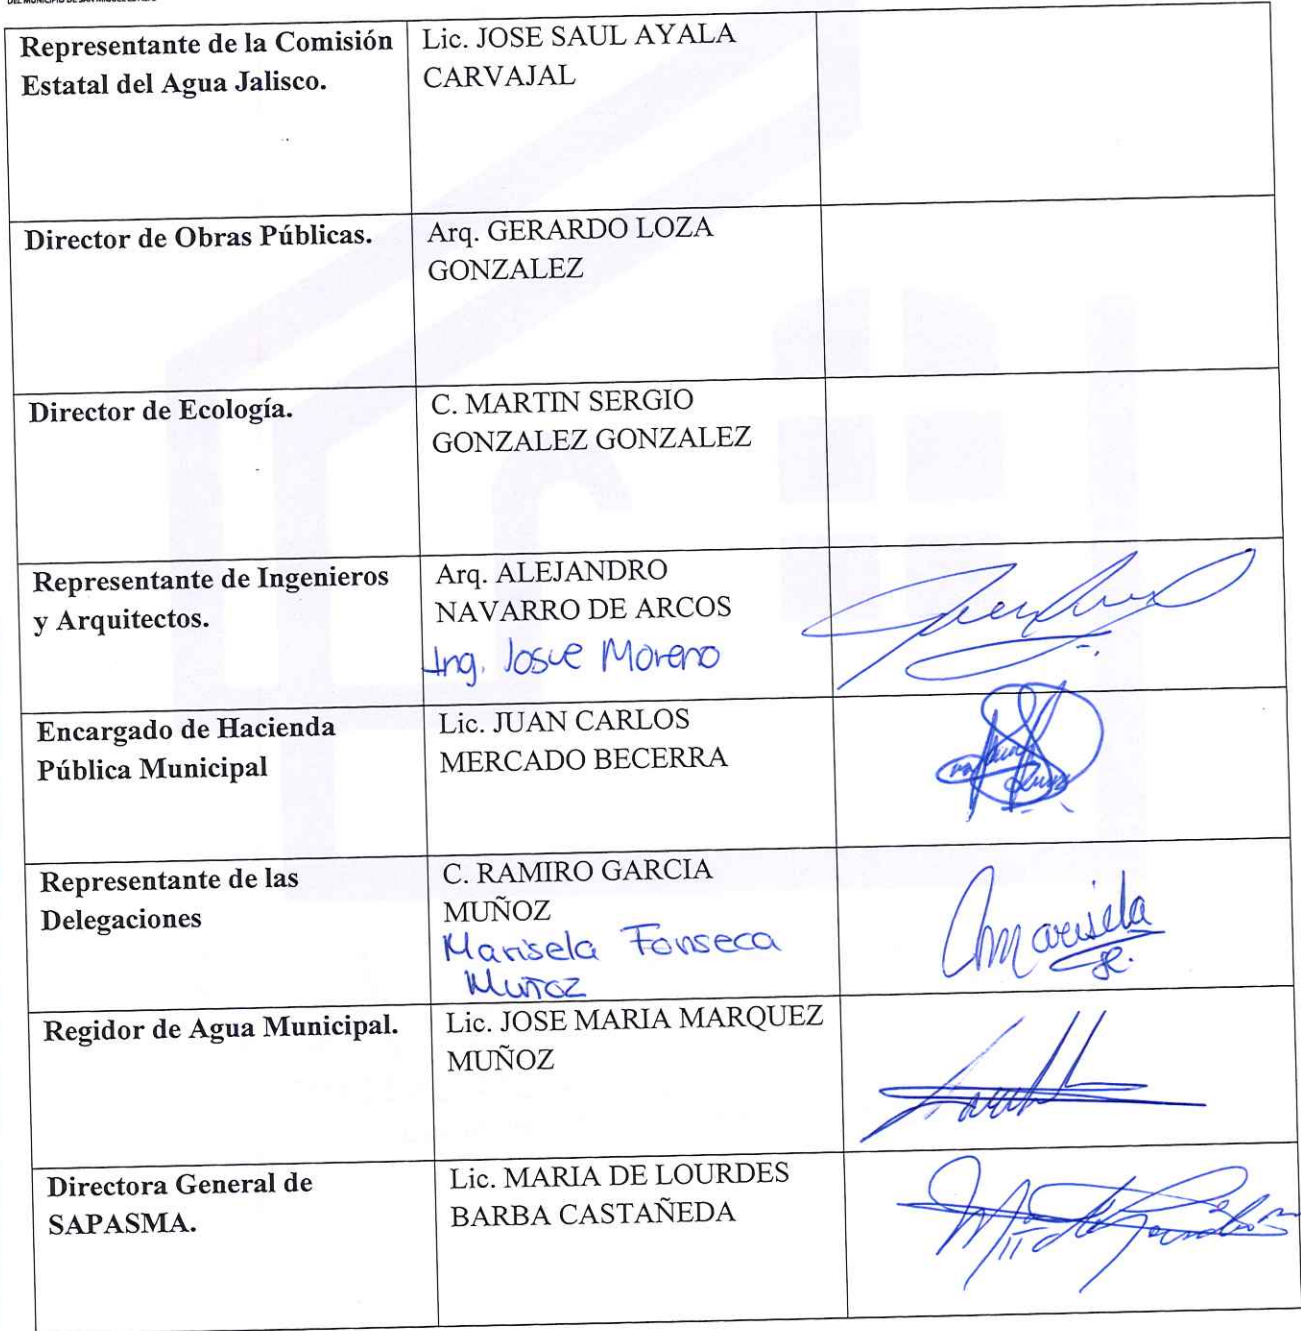 Representante de la Comisión
Estatal del Agua Jalisco.
Lic. JOSE SAUL AYALA
CARVAJAL
Director de Obras Públicas.
Arq. GERARDO LOZA
GONZALEZ
Director de Ecología.
C. MARTIN SERGIO
GONZALEZ GONZALEZ
Representante de Ingenieros
y Arquitectos.
Arq. ALEJANDRO
NAVARRO DE ARCOS
Ing. Josue Moreno
Encargado de Hacienda
Pública Municipal
Lic. JUAN CARLOS
MERCADO BECERRA
Representante de las
Delegaciones
C. RAMIRO GARCIA
MUÑOZ
Marisela Fonseca
Muñoz
Marisela
Regidor de Agua Municipal.
Lic. JOSE MARIA MARQUEZ
MUÑOZ
Directora General de
SAPASMA.
Lic. MARIA DE LOURDES
BARBA CASTAÑEDA